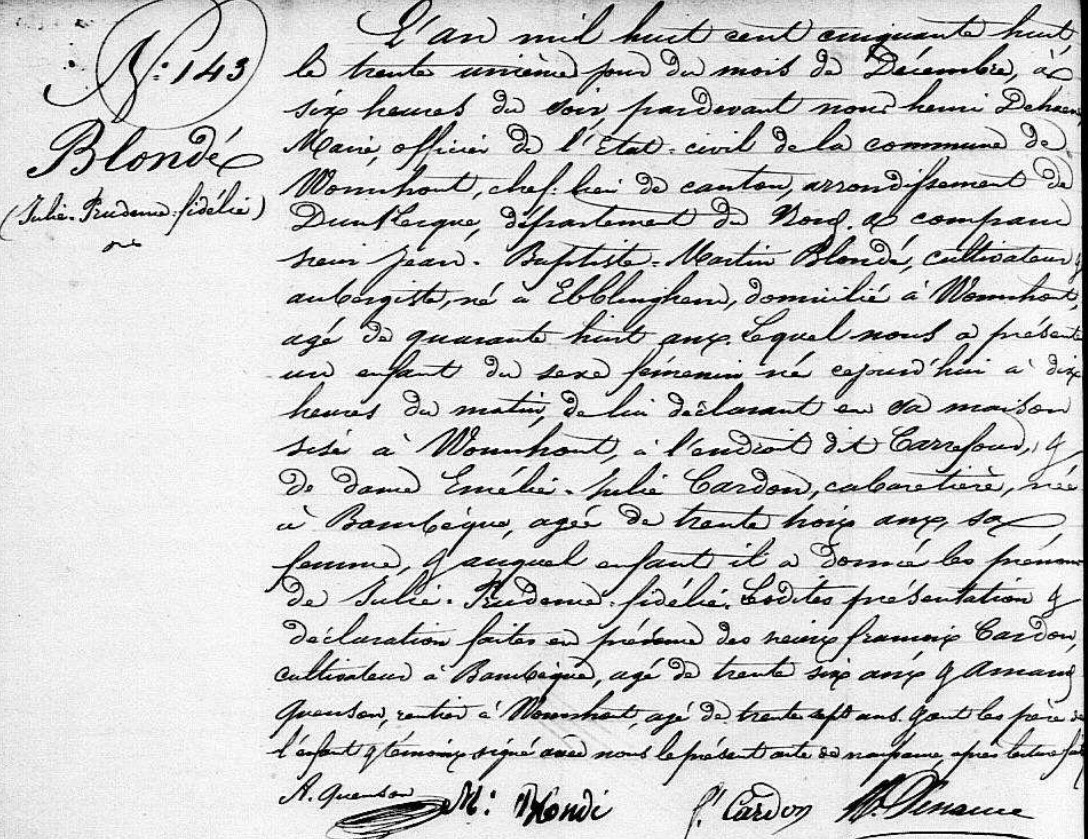 N: 143
Blondé
(Julie-Prudence-fidélie)
L'an mil huit cent cinquante huit
le trente unième jour du mois de Décembre, à
six heures du soir, pardevant nous henri
Maire, officier de l'Etat-civil de la commune de
Wormhout, chef-lieu de canton, arrondissement de
Dunkerque, département du Nord. a comparu
sieur Jean-Baptiste-Martin Blondé, cultivateur &
aubergiste, né à Ebblinghem, domicilié à Wormhout,
agé de quarante huit ans. Lequel nous a présenté
un enfant du sexe féminin né cejourd'hui à dix
heures du matin, de lui déclarant en sa maison
sise à Wormhout, à l'endroit dit Carrefour, &
de dame Emélie-Julie Cardon, cabaretière, née
à Bambèque, agée de trente trois ans, sa
femme, & auquel enfant il a donné les prénoms
de Julie-Prudence-fidélie. Lesdites présentation &
déclaration faites en présence des sieurs françois Cardon,
cultivateur à Bambèque, agé de trente six ans & Amand
Quenson, rentier à Wormhout, agé de trente sept ans. & ont les père de
l'enfant & témoins signé avec nous le présent acte de naissance, après lecture faite
A. Quenson M: Blondé f. Cardon